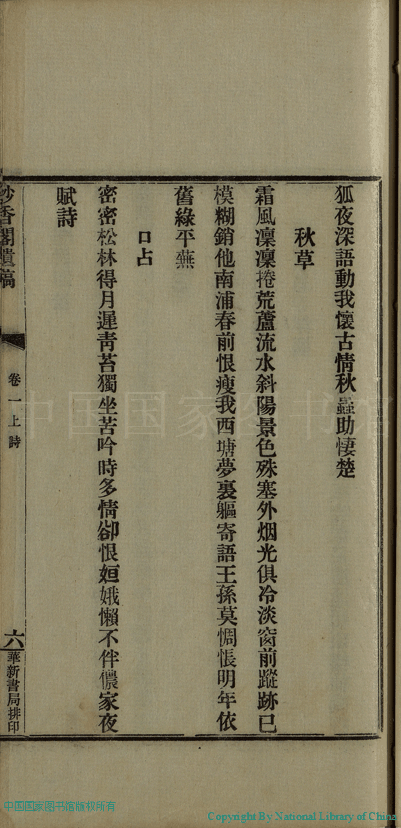 狐夜深語動我懷古情秋蟲助悽楚
秋草
霜風凜凜捲荒蘆流水斜陽景色殊塞外烟光俱冷淡窗前蹤跡已
模糊銷他南浦春前恨瘦我西塘夢裏軀寄語王孫莫惆悵明年依
舊綠平蕪
口占
密密松林得月遲青苔獨坐苦吟時多情卻恨姮娥懶不伴儂家夜
賦詩
香閣遺稿
卷一上詩
六
華新書局排印
中国国家图
中国国家图书馆版权所有
Copyright By National Library of China